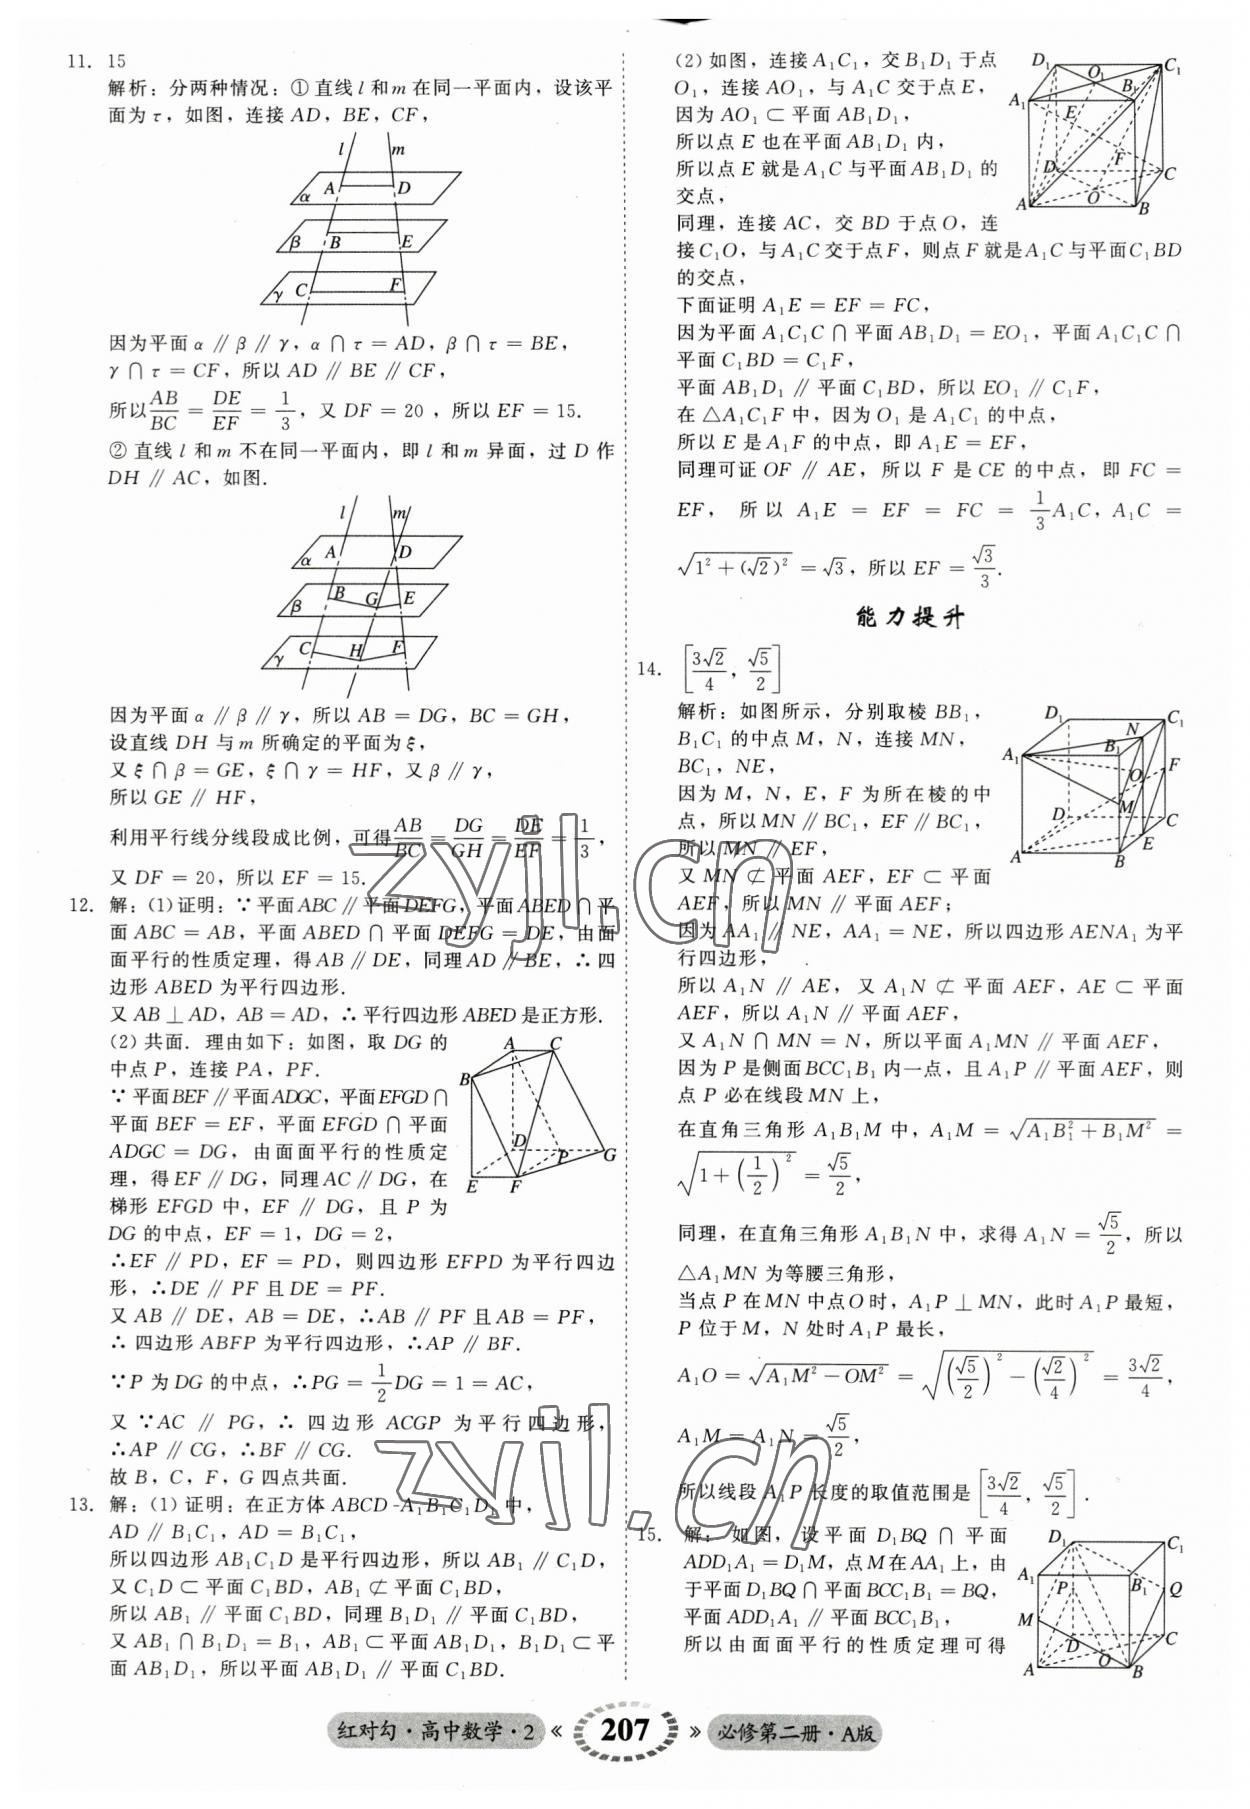 11. 15
解析：分两种情况：①直线 l 和 m 在同一平面内，设该平
面为 τ，如图，连接 AD，BE，CF，
l m
A D α
β B E
C F γ
因为平面 α ∥ β ∥ γ，α ∩ τ = AD，β ∩ τ = BE，
γ ∩ τ = CF，所以 AD ∥ BE ∥ CF，
所以 AB/BC = DE/EF = 1/3，又 DF = 20，所以 EF = 15.
② 直线 l 和 m 不在同一平面内，即 l 和 m 异面，过 D 作
DH ∥ AC，如图.
l m
A D α
B G E β
C H F γ
因为平面 α ∥ β ∥ γ，所以 AB = DG，BC = GH，
设直线 DH 与 m 所确定的平面为 ξ，
又 ξ ∩ β = GE，ξ ∩ γ = HF，又 β ∥ γ，
所以 GE ∥ HF，
利用平行线分线段成比例，可得 AB/BC = DG/GH = DE/EF = 1/3，
又 DF = 20，所以 EF = 15.
12. 解：(1)证明：∵平面ABC ∥平面DEFG，平面ABED∩平
面 ABC = AB，平面 ABED ∩ 平面 DEFG = DE，由面
面平行的性质定理，得AB ∥ DE，同理AD ∥ BE，∴四
边形 ABED 为平行四边形.
又 AB ⊥ AD，AB = AD，∴平行四边形 ABED 是正方形.
(2) 共面. 理由如下：如图，取 DG 的
中点 P，连接 PA，PF.
∵平面BEF∥平面ADGC，平面EFGD∩
平面 BEF = EF，平面 EFGD ∩ 平面
ADGC = DG，由面面平行的性质定
理，得 EF ∥ DG，同理 AC ∥ DG，在
梯形 EFGD 中，EF ∥ DG，且 P 为
DG 的中点，EF = 1，DG = 2，
A C
B
D P G
E F
∴EF ∥ PD，EF = PD，则四边形 EFPD 为平行四边
形，∴DE ∥ PF 且 DE = PF.
又 AB ∥ DE，AB = DE，∴AB ∥ PF 且 AB = PF，
∴ 四边形 ABFP 为平行四边形，∴AP ∥ BF.
∵P 为 DG 的中点，∴PG = 1/2 DG = 1 = AC，
又 ∵AC ∥ PG，∴ 四边形 ACGP 为平行四边形，
∴AP ∥ CG，∴BF ∥ CG.
故 B，C，F，G 四点共面.
13. 解：(1)证明：在正方体 ABCD-A₁B₁C₁D₁ 中，
AD ∥ B₁C₁，AD = B₁C₁，
所以四边形 AB₁C₁D 是平行四边形，所以 AB₁ ∥ C₁D，
又 C₁D ⊂ 平面 C₁BD，AB₁ ⊄ 平面 C₁BD，
所以 AB₁ ∥ 平面 C₁BD，同理 B₁D₁ ∥ 平面 C₁BD，
又 AB₁ ∩ B₁D₁ = B₁，AB₁ ⊂ 平面 AB₁D₁，B₁D₁ ⊂ 平
面 AB₁D₁，所以平面 AB₁D₁ ∥ 平面 C₁BD.
(2) 如图，连接 A₁C₁，交 B₁D₁ 于点
O₁，连接 AO₁，与 A₁C 交于点 E，
因为 AO₁ ⊂ 平面 AB₁D₁，
所以点 E 也在平面 AB₁D₁ 内，
所以点 E 就是 A₁C 与平面 AB₁D₁ 的
交点，
同理，连接 AC，交 BD 于点 O，连
D₁ O₁ C₁
A₁ B₁
E
D F C
A O B
接C₁O，与A₁C交于点F，则点 F 就是A₁C与平面C₁BD
的交点，
下面证明 A₁E = EF = FC，
因为平面 A₁C₁C ∩ 平面 AB₁D₁ = EO₁，平面 A₁C₁C ∩
平面 C₁BD = C₁F，
平面 AB₁D₁ ∥ 平面 C₁BD，所以 EO₁ ∥ C₁F，
在 △A₁C₁F 中，因为 O₁ 是 A₁C₁ 的中点，
所以 E 是 A₁F 的中点，即 A₁E = EF，
同理可证 OF ∥ AE，所以 F 是 CE 的中点，即 FC =
EF，所以 A₁E = EF = FC = 1/3 A₁C，A₁C =
√(1² + (√2)²) = √3，所以 EF = √3/3.
能力提升
14. [3√2/4，√5/2]
解析：如图所示，分别取棱 BB₁，
B₁C₁ 的中点 M，N，连接 MN，
BC₁，NE，
因为 M，N，E，F 为所在棱的中
点，所以MN ∥ BC₁，EF ∥ BC₁，
所以 MN ∥ EF，
又 MN ⊄ 平面 AEF，EF ⊂ 平面
AEF，所以 MN ∥ 平面 AEF；
D₁ C₁
N
A₁ B₁
O F
M
D C
E
A B
因为 AA₁ ∥ NE，AA₁ = NE，所以四边形 AENA₁ 为平
行四边形，
所以 A₁N ∥ AE，又 A₁N ⊄ 平面 AEF，AE ⊂ 平面
AEF，所以 A₁N ∥ 平面 AEF，
又 A₁N ∩ MN = N，所以平面 A₁MN ∥ 平面 AEF，
因为 P 是侧面 BCC₁B₁ 内一点，且 A₁P ∥ 平面 AEF，则
点 P 必在线段 MN 上，
在直角三角形 A₁B₁M 中，A₁M = √(A₁B₁² + B₁M²) =
√(1 + (1/2)²) = √5/2，
同理，在直角三角形 A₁B₁N 中，求得 A₁N = √5/2，所以
△A₁MN 为等腰三角形，
当点 P 在 MN 中点 O 时，A₁P ⊥ MN，此时 A₁P 最短，
P 位于 M，N 处时 A₁P 最长，
A₁O = √(A₁M² − OM²) = √((√5/2)² − (√2/4)²) = 3√2/4，
A₁M = A₁N = √5/2，
所以线段 A₁P 长度的取值范围是 [3√2/4，√5/2].
15. 解：如图，设平面 D₁BQ ∩ 平面
ADD₁A₁ = D₁M，点 M 在 AA₁ 上，由
于平面 D₁BQ ∩ 平面 BCC₁B₁ = BQ，
平面 ADD₁A₁ ∥ 平面 BCC₁B₁，
所以由面面平行的性质定理可得
D₁ C₁
A₁ B₁
P Q
M
D C
O
A B
zyjl.cn
zyjl.cn
红对勾·高中数学·2 « 207 » 必修第二册·A版